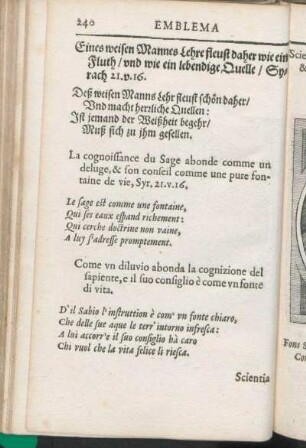 240 EMBLEMA
Eines weisen Mannes Lehre fleust daher wie ein
Fluth / vnd wie ein lebendige Quelle / Sy-
rach 21.v.16.
Deß weisen Manns Lehr fleust schön daher/
Vnd macht herrliche Quellen:
Ist jemand der Weißheit begehr/
Muß sich zu jhm gesellen.
La cognoissance du Sage abonde comme un
deluge, & son conseil comme une pure fon-
taine de vie, Syr. 21.v.16.
Le sage est comme une fontaine,
Qui ses eaux espand richement:
Qui cerche doctrine non vaine,
A luy s'adresse promptement.
Come vn diluvio abonda la cognizione del
sapiente, e il suo consiglio è come vn fonte
di vita.
D'il Sabio l'instruttion è com' vn fonte chiaro,
Che delle sue aque le terr' intorno infresca:
A lui accorr'e il suo consiglio hà caro
Chi vuol che la vita felice li riesca.
Scientia
Scien
&
Fons S
Con